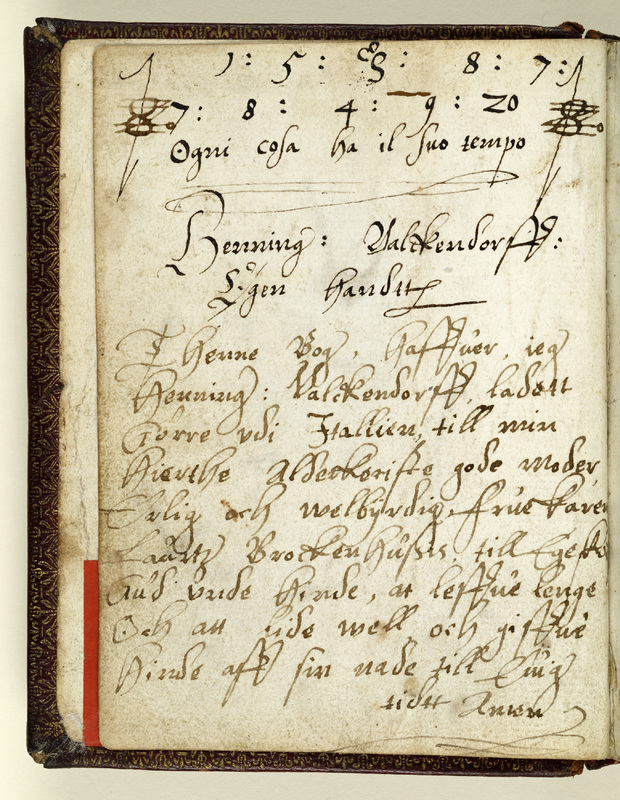 1 : 5 : 8 : 8 : 7 :
7 : 8 : 4 : 9 : 20
Ogni cosa ha il suo tempo
Henning : Valckendorff :
Eÿgen handtt
Thenne Bog, haffuer, ieg
Henning : Valckendorff, ladett
Giorre vdi Itallien, till min
Hierthe Aldeckeriste gode moder,
Erlig och welbÿrdig, frue karen
Laurtz Brockenhusis, till Egeskou
Gud vnde hinde, at leffue lenge
Och att lide well, och giffue
hinde aff sin nade till Euig
tidtt Amen